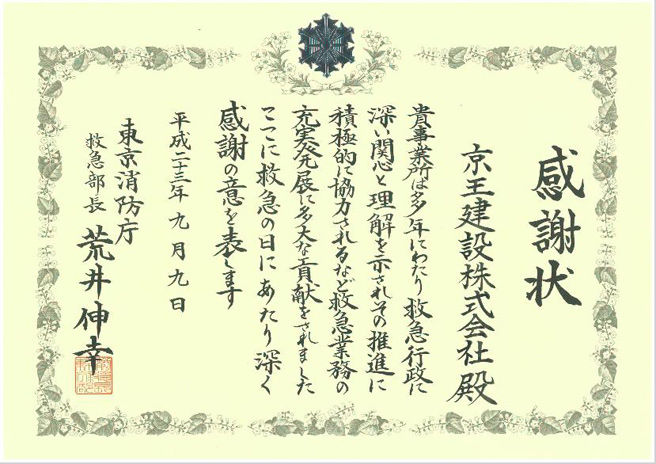 感謝状
京王建設株式会社殿
貴事業所は多年にわたり救急行政に
深い関心と理解を示されその推進に
積極的に協力されるなど救急業務の
充実発展に多大な貢献をされました
ここに救急の日にあたり深く
感謝の意を表します
平成二十三年九月九日
東京消防庁
救急部長 荒井伸幸